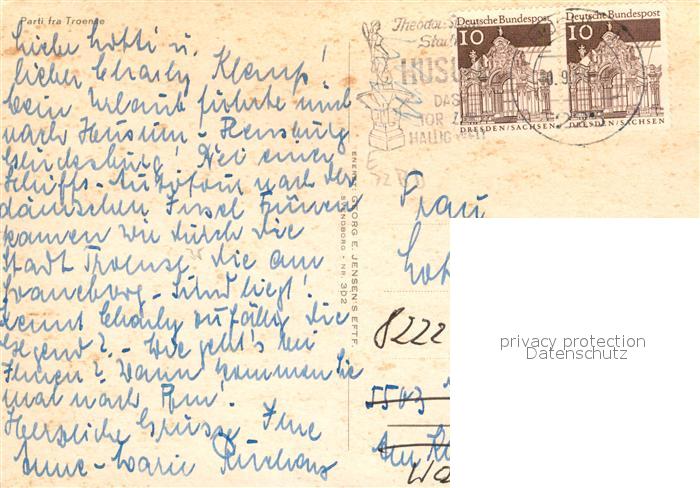 Parti fra Troense
Liebe Lotti u.
lieber Charly Klemp!
Mein Urlaub führte mich
nach Husum - Flensburg
Glücksburg! Bei einer
Schiffs-Autotour nach der
dänischen Insel Fünen
kamen wir durch die
Stadt Troense, die am
Svaneborg - Sund liegt!
Kennt Charly zufällig die
Gegend? - Wie geht's bei
Ihnen? Wann kommen Sie
mal nach
Herzliche Grüsse Ihre
Anne-Marie
ENERET: GEORG E. JENSEN'S EFTF.
SVENDBORG - NR. 302
Theodor-S
Sta
HUSU
DAS
TOR Z
HALLIGWELT
Deutsche Bundespost
10
DRESDEN/SACHSEN
Deutsche Bundespost
10
DRESDEN/SACHSEN
Frau
Lot
8222
5503
privacy protection
Datenschutz